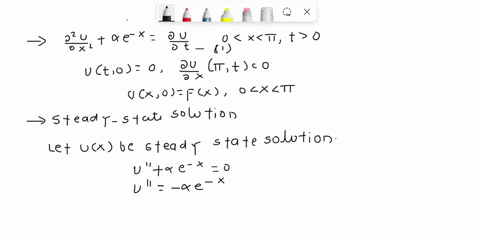 → ∂²U/∂x² + αe^-x = ∂U/∂t -(1) 0 < x < π, t > 0
U(t,0) = 0, ∂U/∂x (π,t) = 0
U(x,0) = F(x), 0 < x < π
→ Steady-state solution
Let U(x) be steady state solution.
U'' + αe^-x = 0
U'' = -αe^-x